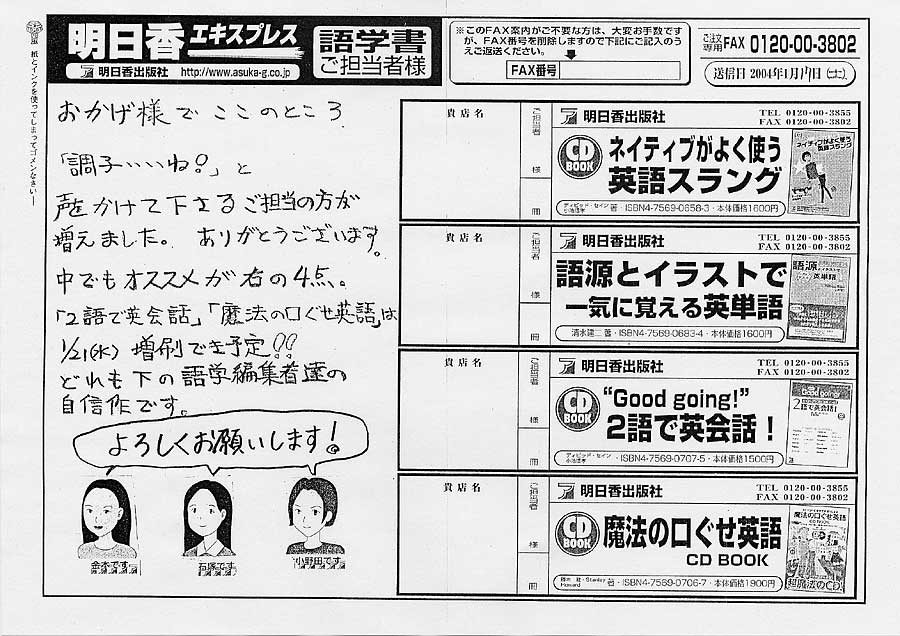 紙とインクを使ってしまってゴメンなさい!
明日香エキスプレス
明日香出版社 http://www.asuka-g.co.jp
語学書
ご担当者様
※このFAX案内がご不要な方は、大変お手数です
が、FAX番号を削除しますので下記にご記入のう
えご返送ください。
FAX番号
ご注文
専用 FAX 0120-00-3802
送信日 2004年1月17日(土)
おかげ様で ここのところ
「調子いいね!」と
声をかけて下さるご担当の方が
増えました。ありがとうございます。
中でもオススメが右の4点。
「2語で英会話」「魔法の口ぐせ英語」は
1/21(水) 増刷でき予定!!
どれも下の語学編集者達の
自信作です。
よろしくお願いします!
金本です
石塚です
小野田です
貴店名
ご担当者
様
冊
明日香出版社
TEL 0120-00-3855
FAX 0120-00-3802
CD BOOK
ネイティブがよく使う
英語スラング
ディビッド・セイン
小池信孝 著・ISBN4-7569-0658-3・本体価格1600円
ネイティブがよく使う
英語スラング
貴店名
ご担当者
様
冊
明日香出版社
TEL 0120-00-3855
FAX 0120-00-3802
語源とイラストで
一気に覚える英単語
清水建二 著・ISBN4-7569-0683-4・本体価格1600円
語源とイラストで
英単語
貴店名
ご担当者
様
冊
明日香出版社
TEL 0120-00-3855
FAX 0120-00-3802
CD BOOK
“Good going!”
2語で英会話!
ディビッド・セイン
小池信孝 ・ISBN4-7569-0707-5・本体価格1500円
Good going!
2語で英会話!
貴店名
ご担当者
様
冊
明日香出版社
TEL 0120-00-3855
FAX 0120-00-3802
CD BOOK
魔法の口ぐせ英語
CD BOOK
Stanley
Howard 著・ISBN4-7569-0706-7・本体価格1900円
魔法の口ぐせ英語
CD BOOK
超魔法のCD